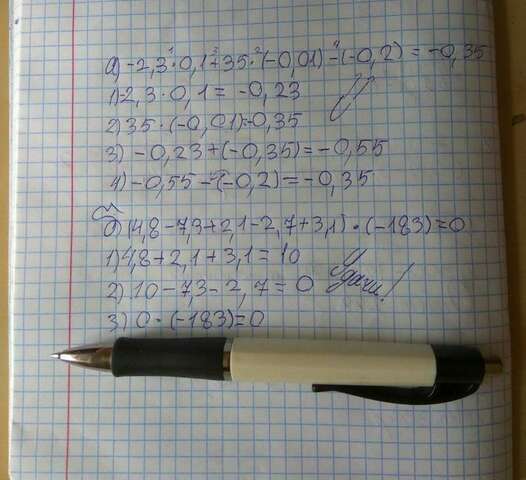 а) -2,3·0,1+35·(-0,01)-(-0,2)=-0,35
1)-2,3·0,1=-0,23
2)35·(-0,01)=-0,35
3) -0,23+(-0,35)=-0,55
4)-0,55-(-0,2)=-0,35
б) (4,8-7,3+2,1-2,7+3,1)·(-183)=0
1)4,8+2,1+3,1=10
2) 10-7,3-2,7=0 Удачи!
3) 0·(-183)=0